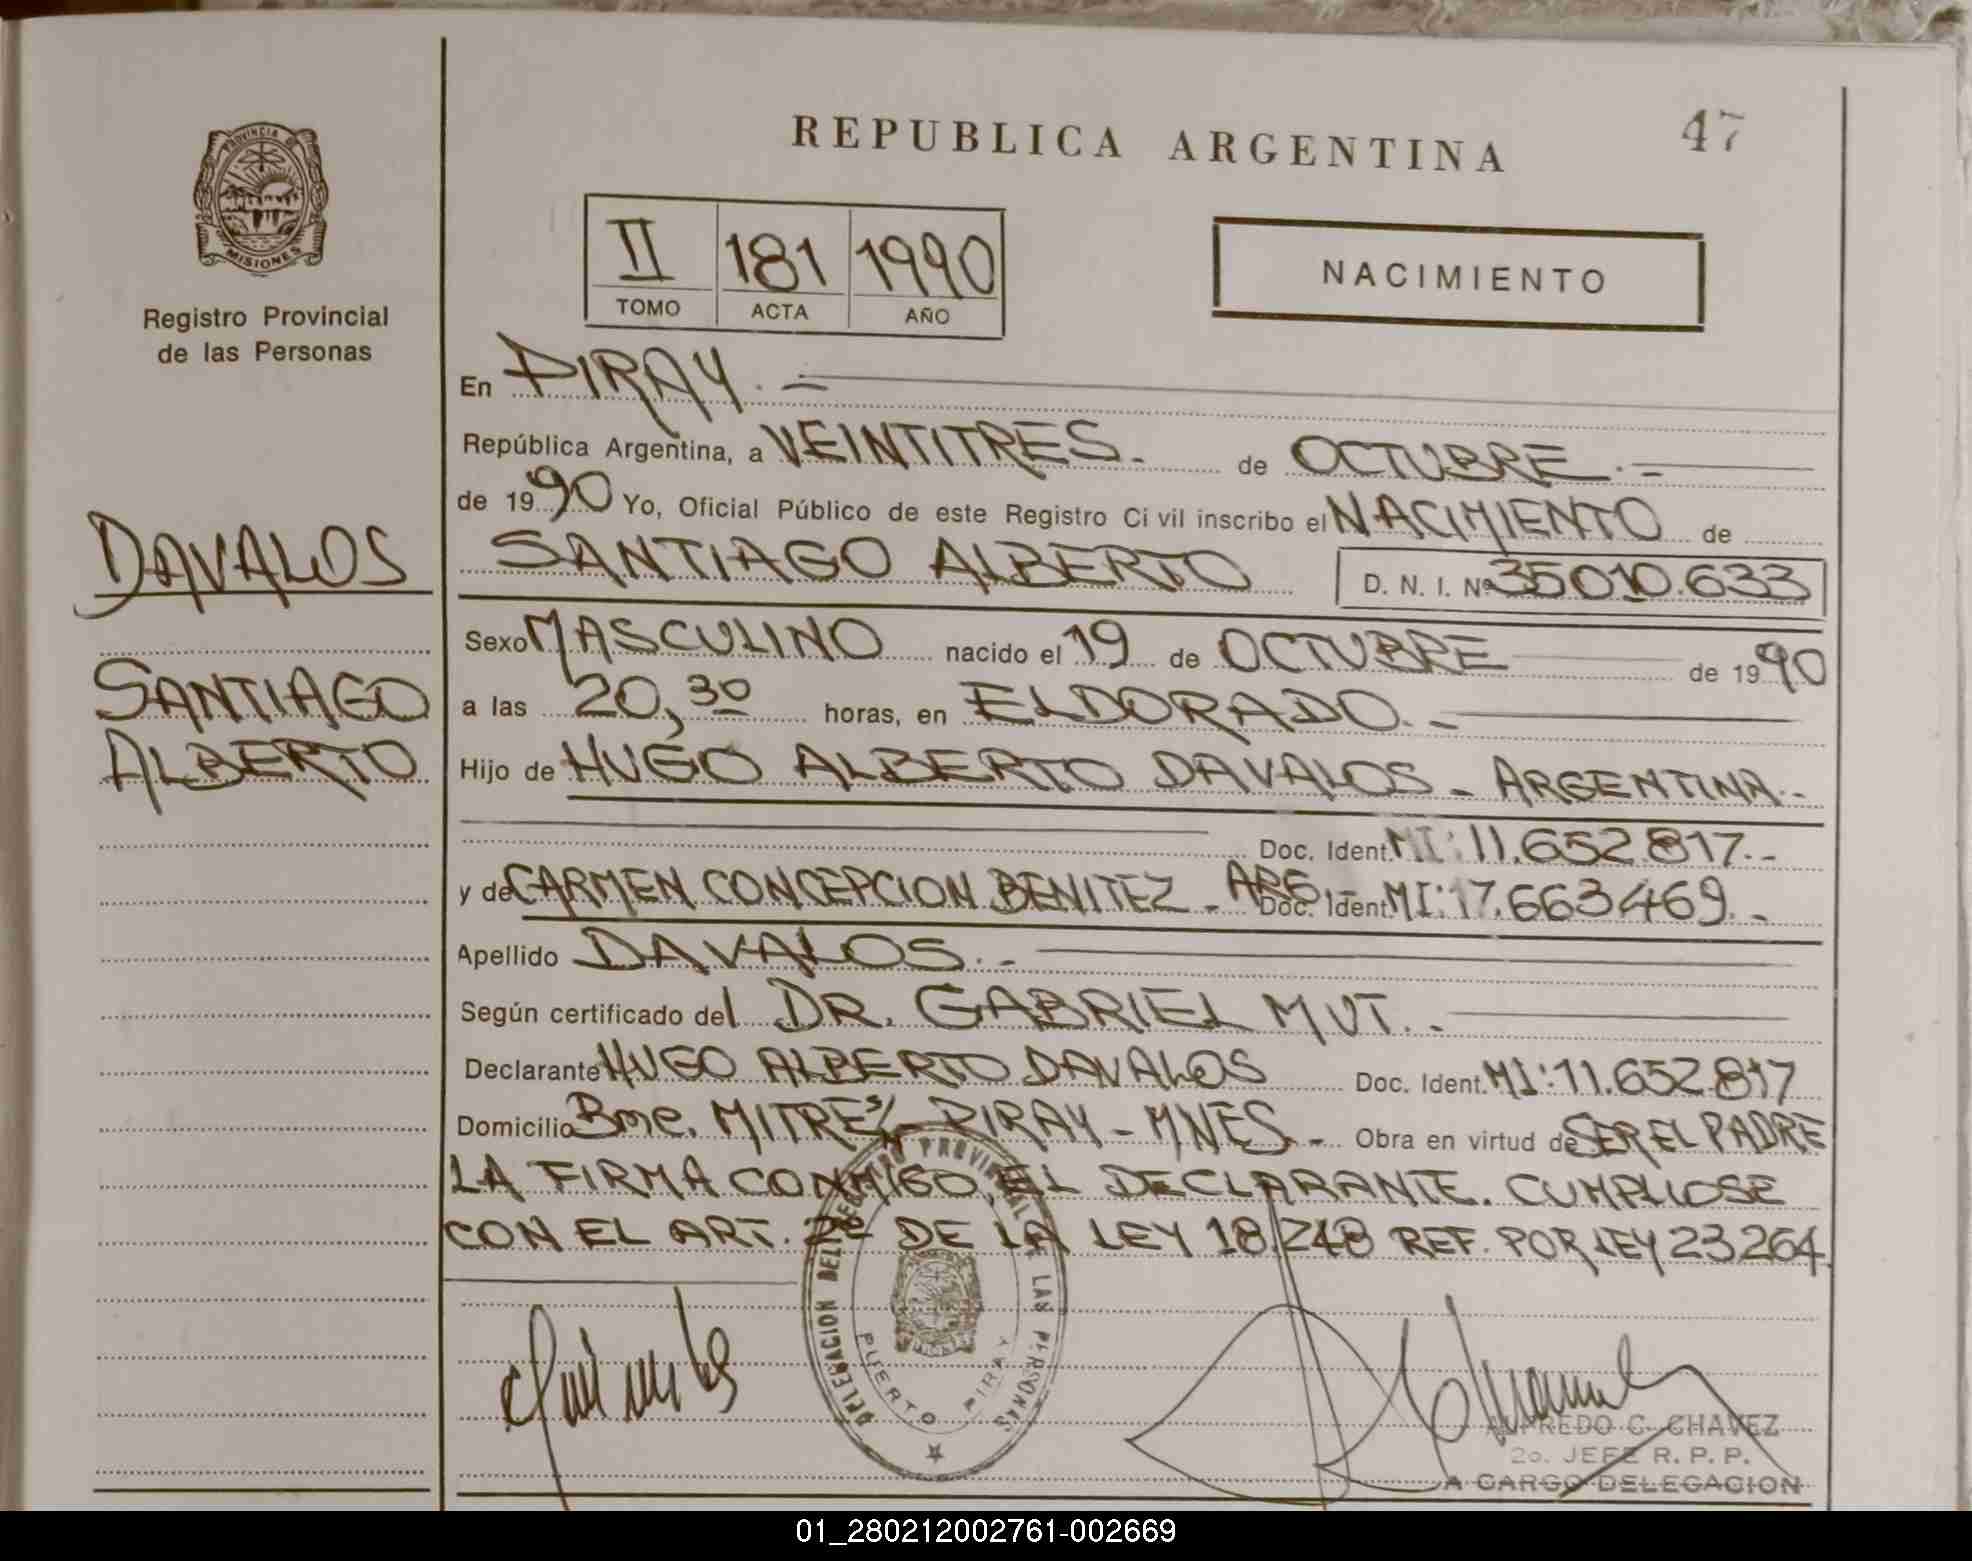 REPUBLICA ARGENTINA
47
PROVINCIA DE
MISIONES
Registro Provincial
de las Personas
II 181 1990
TOMO ACTA AÑO
NACIMIENTO
En PIRAY.-
República Argentina, a VEINTITRES.- de OCTUBRE.-
de 1990 Yo, Oficial Público de este Registro Civil inscribo el NACIMIENTO de
SANTIAGO ALBERTO D. N. I. Nº 35010.633
Sexo MASCULINO nacido el 19 de OCTUBRE de 1990
a las 20,30 horas, en ELDORADO.-
Hijo de HUGO ALBERTO DAVALOS - ARGENTINA.-
Doc. Ident. MI: 11.652.817.-
y de CARMEN CONCEPCION BENITEZ - ARG. Doc. Ident. MI: 17.663469.-
Apellido DAVALOS.-
Según certificado del DR. GABRIEL MUT.-
Declarante HUGO ALBERTO DAVALOS Doc. Ident. MI: 11.652.817
Domicilio Bme. MITRE S/N PIRAY - MNES.- Obra en virtud de SER EL PADRE
LA FIRMA CONMIGO, EL DECLARANTE. CUMPLIOSE
CON EL ART. 2º DE LA LEY 18.248 REF. POR LEY 23264
DAVALOS
SANTIAGO
ALBERTO
DELEGACION DEL REGISTRO PROVINCIAL DE LAS PERSONAS
PUERTO PIRAY
ALFREDO C. CHAVEZ
2o. JEFE R. P. P.
A CARGO DELEGACION
01_280212002761-002669